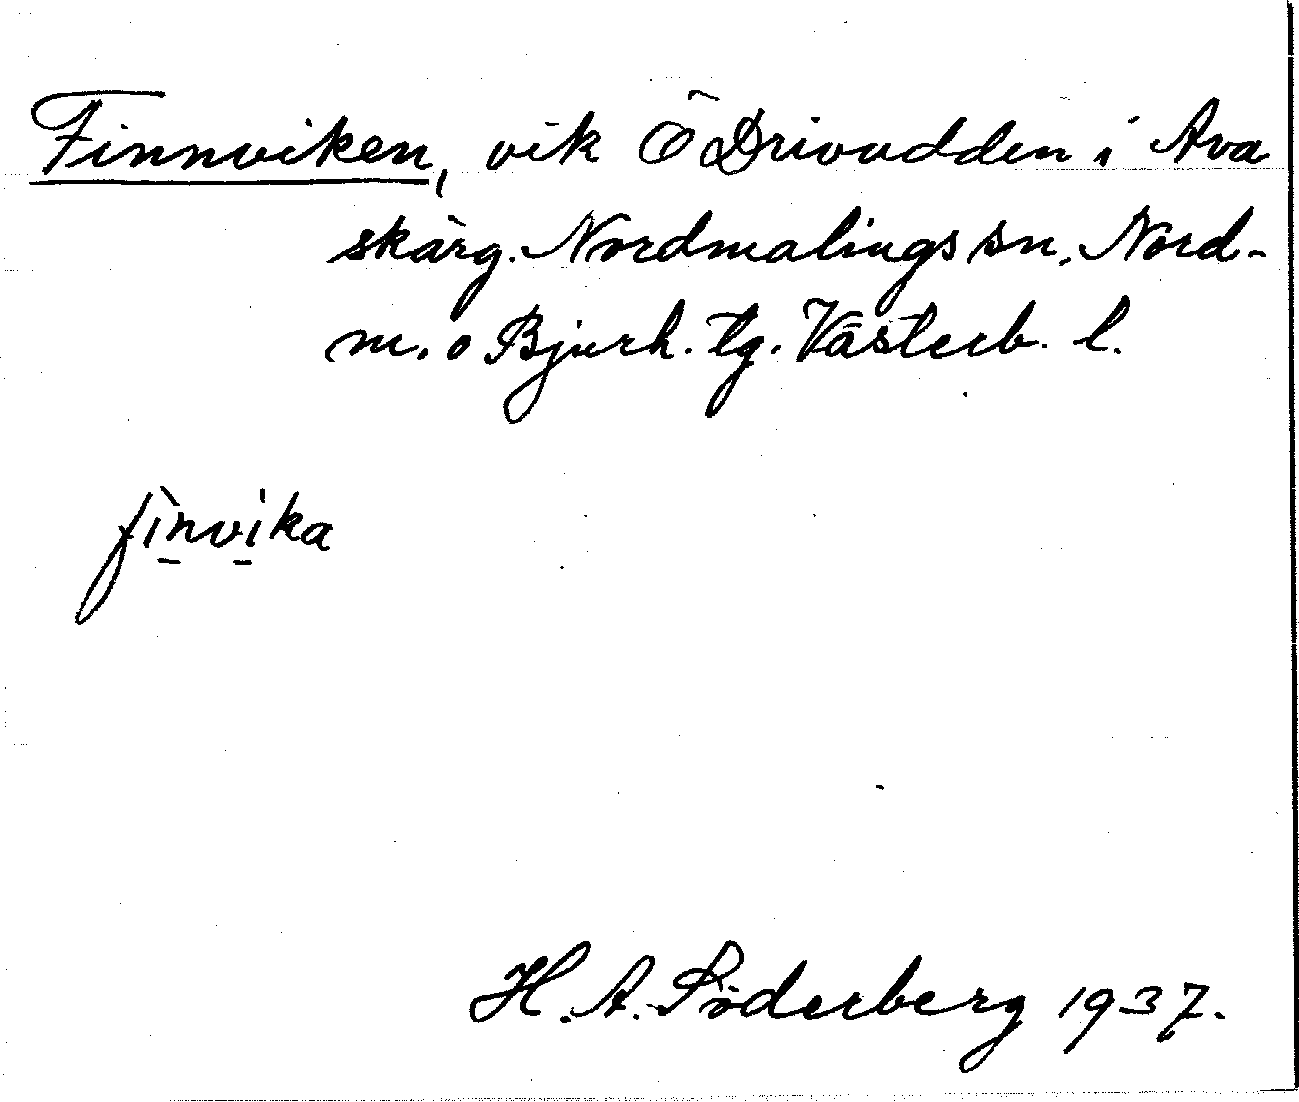 Finnviken, vik Ö Drivudden i Ava
skärg. Nordmalings sn. Nord-
m. o Bjurh. tg. Västerb. l.
fìnvika
H. A. Söderberg 1937.